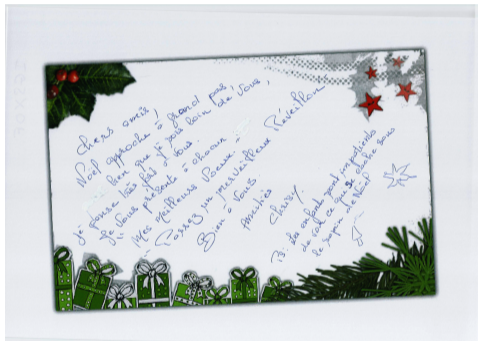 Chers amis,
Noël approche à grand pas,
bien que je sois loin de vous,
je pense très fort à vous.
Je vous présente à chacun
Mes meilleurs voeux.
Passez un merveilleux Réveillon
Bien à vous
Amitiés
Christy.
les enfants sont impatients
de voir ce qui se cache sous
le sapin de Noël